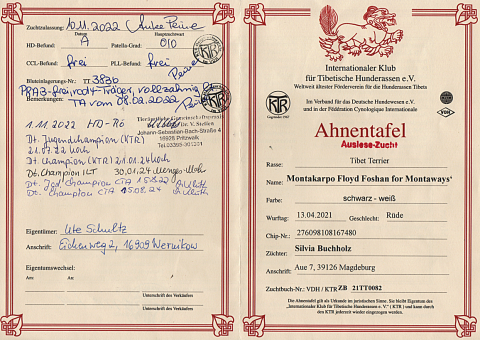 Zuchtzulassung: 10.11.2022
Datum
HD-Befund: A Patella-Grad: 0/0
CCL-Befund: frei PLL-Befund: frei
Bluteinlagerungs-Nr.: TT 383b
PRA3-frei, rcd4-Träger, vollzahnig
Bemerkungen: TA vom 08.09.2022
1.11.2022 HD-Rö
Dr. V. Steffen
Johann-Sebastian-Bach-Straße 4
16928 Pritzwalk
Dt. Jugendchampion (KTR)
21.07.22 Koch
Dt. Champion (KTR) 21.01.24 Koch
Dt. Champion ILT 30.01.24
Dt. Jgd. Champion CTA 15.8.22
Dt. Champion CTA 15.08.24
Eigentümer: Ute Schultz
Anschrift: Eichenweg 2, 16909 Wernikow
Eigentumswechsel:
Anschrift:
Datum:
Unterschrift des Verkäufers
Anschrift:
Datum:
Unterschrift des Verkäufers
Internationaler Klub
für Tibetische Hunderassen e.V.
Weltweit ältester Förderverein für die Hunderassen Tibets
KTR
Gegründet 1967
Im Verband für das Deutsche Hundewesen e.V.
und in der Fédération Cynologique Internationale
FCI
VDH
Ahnentafel
Auslese-Zucht
Rasse: Tibet Terrier
Name: Montakarpo Floyd Foshan for Montaways'
Farbe: schwarz - weiß
Wurftag: 13.04.2021 Geschlecht: Rüde
Chip-Nr.: 276098108167480
Züchter: Silvia Buchholz
Anschrift: Aue 7, 39126 Magdeburg
Zuchtbuch-Nr.: VDH / KTR ZB 21TT0082
Die Ahnentafel gilt als Urkunde im juristischen Sinne. Sie bleibt Eigentum des
"Internationaler Klub für Tibetische Hunderassen e. V." ( KTR ) und kann durch
den KTR jederzeit wieder eingezogen werden.